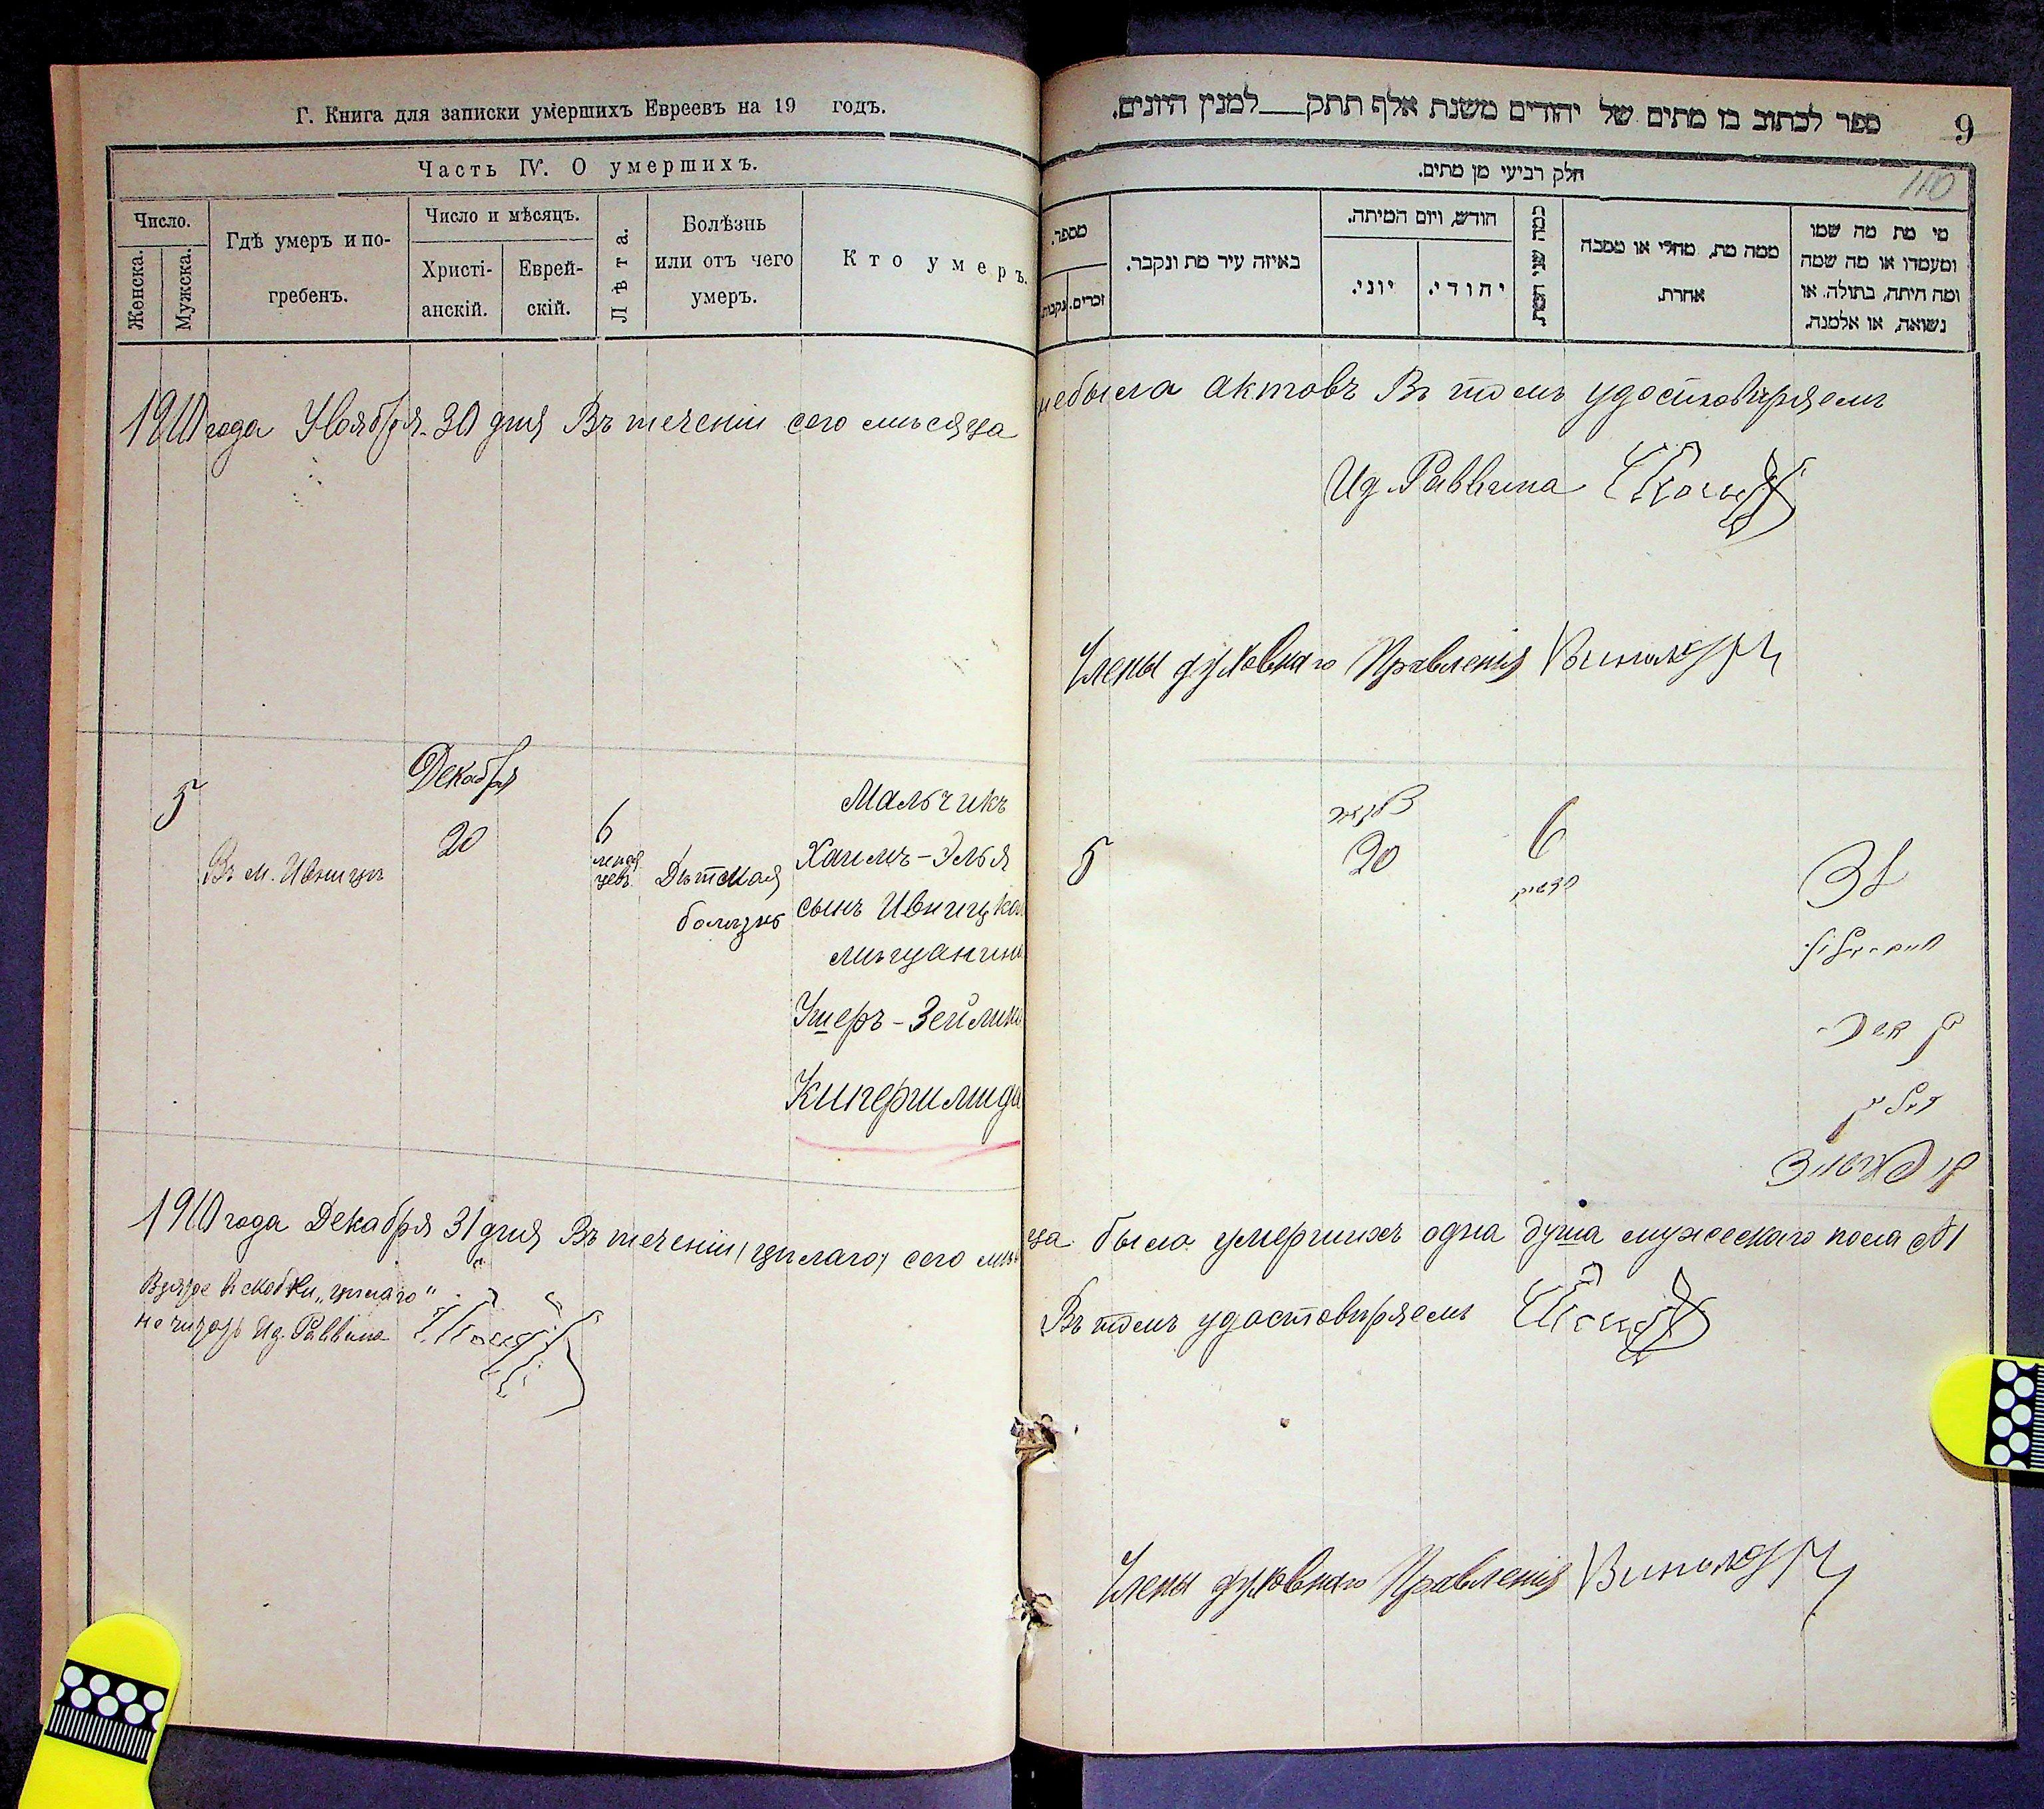 Г. Книга для записки умершихъ Евреевъ на 19 годъ.
Часть IV. О умершихъ.
Число.
Женска.
Мужска.
Гдѣ умеръ и по-
гребенъ.
Число и мѣсяцъ.
Христі-
анскій.
Еврей-
скій.
Лѣта.
Болѣзнь
или отъ чего
умеръ.
Кто умеръ.
1910 года Ноября 30 дня Въ теченіи сего мѣсяца
5
Въ м. Ивницѣ
Декабря
20
6
Дѣтская
болѣзнь
Мальчикъ
Хаимъ-Элья
сынъ Ивницка
мѣщанина
Ушеръ-Зейлика
1910 года Декабря 31 дня Въ теченіи (цѣлаго) сего мѣ
Взятое въ скобки „цѣлаго"
не читать Ид. Раввина
ספר לכתוב בו מתים של יהודים משנת אלף תתק למנין היונים.
9
110
חלק רביעי מן מתים.
מספר.
נקבות.
זכרים.
באיזה עיר מת ונקבר.
חודש, ויום המיתה.
יוני.
יהודי.
כמה שני המת.
ממה מת, מחלי או מסבה
אחרת.
מי מת מה שמו
ומעמדו או מה שמה
ומה היתה, בתולה, או
נשואה, או אלמנה.
небыла актовъ Въ томъ удостовѣряемъ
Ид. Раввина
Члены духовнаго Правленія
5
20
6
ца было умершихъ одна душа мужескаго пола №1
Въ томъ удостовѣряемъ
Члены духовнаго Правленія